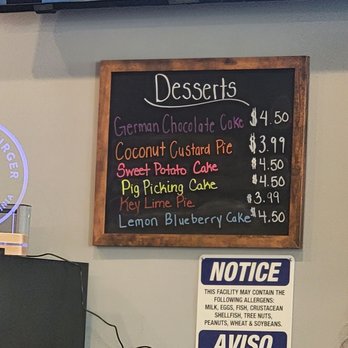 Desserts
German Chocolate Cake $4.50
Coconut Custard Pie $3.99
Sweet Potato Cake $4.50
Pig Picking Cake $4.50
Key Lime Pie $3.99
Lemon Blueberry Cake $4.50
NOTICE
THIS FACILITY MAY CONTAIN THE
FOLLOWING ALLERGENS:
MILK, EGGS, FISH, CRUSTACEAN
SHELLFISH, TREE NUTS,
PEANUTS, WHEAT & SOYBEANS.
AVISO